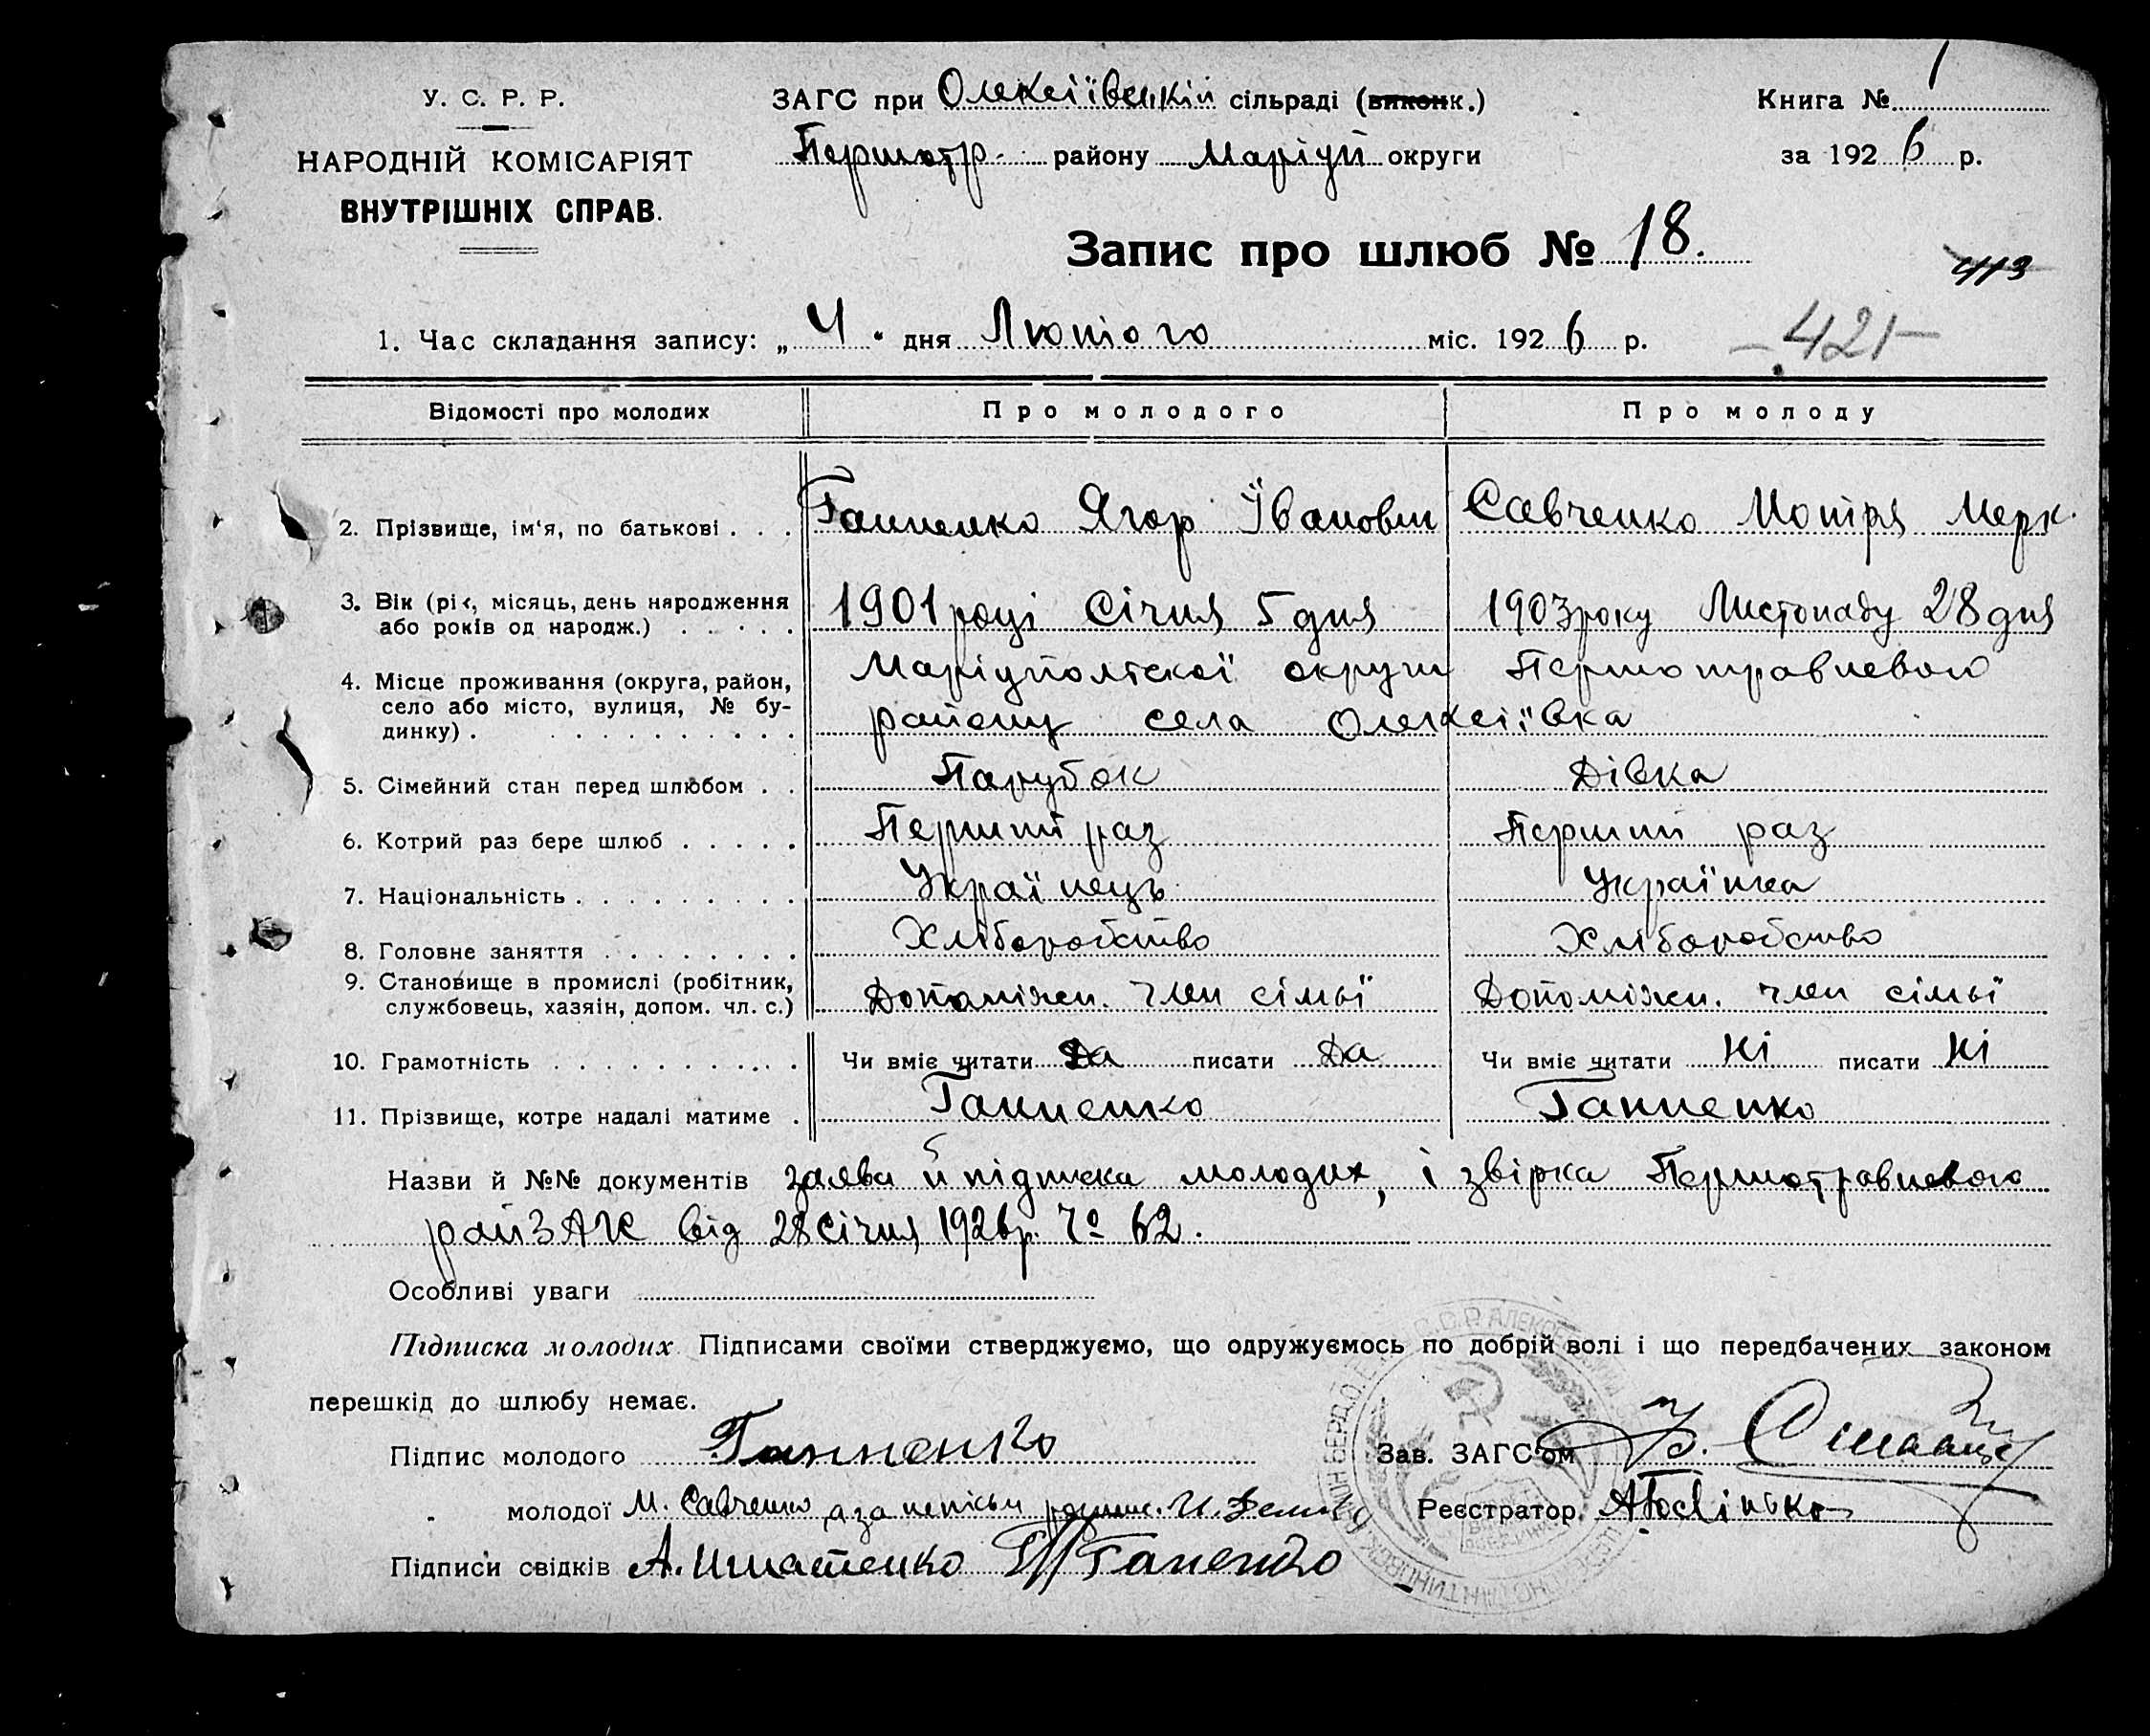 У. С. Р. Р.
НАРОДНІЙ КОМІСАРІЯТ
ВНУТРІШНІХ СПРАВ.
ЗАГС при Олексіївській сільраді (виконк.)
Першотр. району Маріуп округи
Книга № 1
за 1926 р.
Запис про шлюб № 18.
413
421
1. Час складання запису: „4“ дня Лютого міс. 1926 р.
Відомості про молодих Про молодого Про молоду
2. Прізвище, ім'я, по батькові . . . Ганненко Ягор Іванович Савченко Мотря Мерк.
3. Вік (рік, місяць, день народження
або років од народж.) . . . . . 1901 році Січня 5 дня 1903 року Листопаду 28 дня
4. Місце проживання (округа, район,
село або місто, вулиця, № бу-
динку) . . . . . . . . . .
Маріупольської округи Першотравневого
району села Олексіївка
5. Сімейний стан перед шлюбом . . Парубок Дівка
6. Котрий раз бере шлюб . . . . . Перший раз Перший раз
7. Національність . . . . . . . . . Українець Українка
8. Головне заняття . . . . . . . . Хліборобство Хліборобство
9. Становище в промислі (робітник,
службовець, хазяін, допом. чл. с.) Допоміжн. член сімьї Допоміжн. член сімьї
10. Грамотність . . . . . . . . . . Чи вміє читати Да писати Да Чи вміє читати Ні писати Ні
11. Прізвище, котре надалі матиме . Ганненко Ганненко
Назви й №№ документів заява й підписка молодих, і звірка Першотравневого
райЗАГС від 28 Січня 1926 р. Чо 62.
Особливі уваги
Підписка молодих. Підписами своїми стверджуємо, що одружуємось по добрій волі і що передбачених законом
перешкід до шлюбу немає.
Підпис молодого Ганненко
Зав. ЗАГС'ом
молодої М. Савченко, а за неписьм
Реєстратор
Підписи свідків А. Игнатенко Ганненко